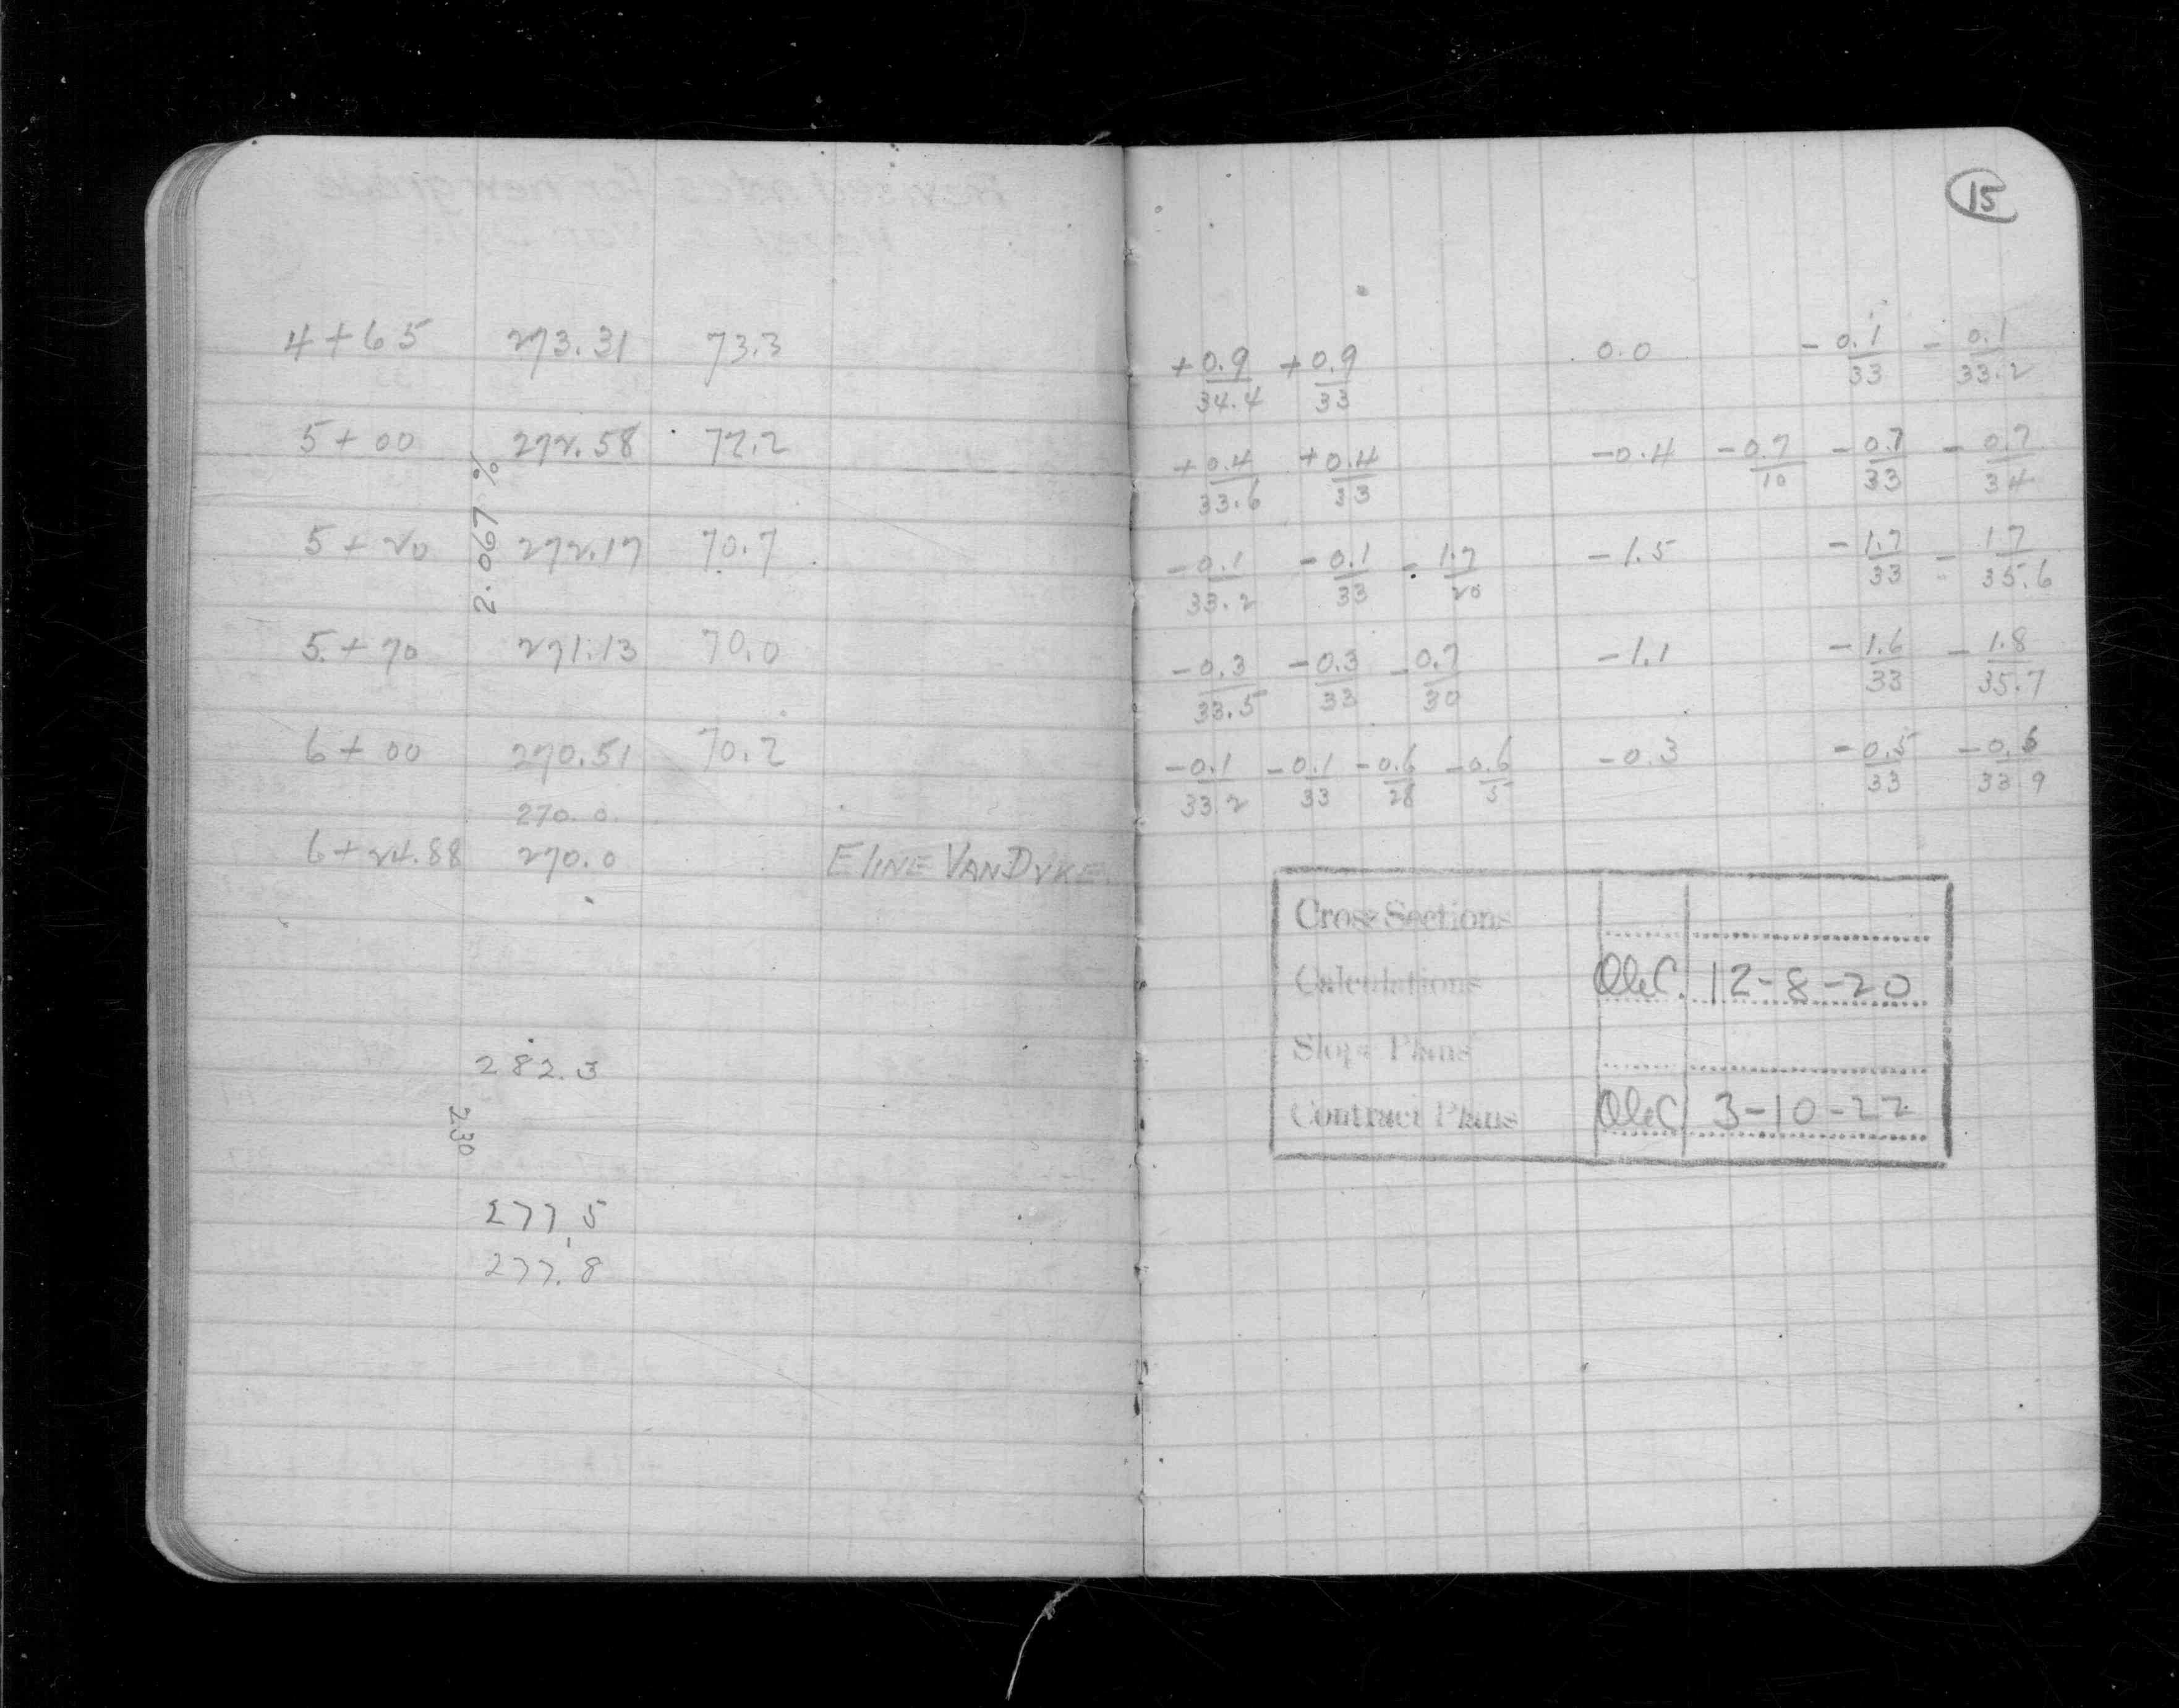 15
4+65 273.31 73.3 +0.9/34.4 +0.9/33 0.0 -0.1/33 -0.1/33.2
5+00 272.58 72.2 +0.4/33.6 +0.4/33 -0.4 -0.7/10 -0.7/33 -0.7/34
2.067 %
5+20 272.17 70.7 -0.1/33.2 -0.1/33 -1.7/20 -1.5 -1.7/33 -1.7/35.6
5+70 271.13 70.0 -0.3/33.5 -0.3/33 -0.7/30 -1.1 -1.6/33 -1.8/35.7
6+00 270.51 70.2 -0.1/33.2 -0.1/33 -0.6/28 -0.6/5 -0.3 -0.5/33 -0.6/33.9
270.0
6+24.88 270.0 E LINE VAN DYKE
Cross Sections
Calculations 12-8-20
Slope Plans
Contract Plans 3-10-22
282.3
230
277.5
277.8